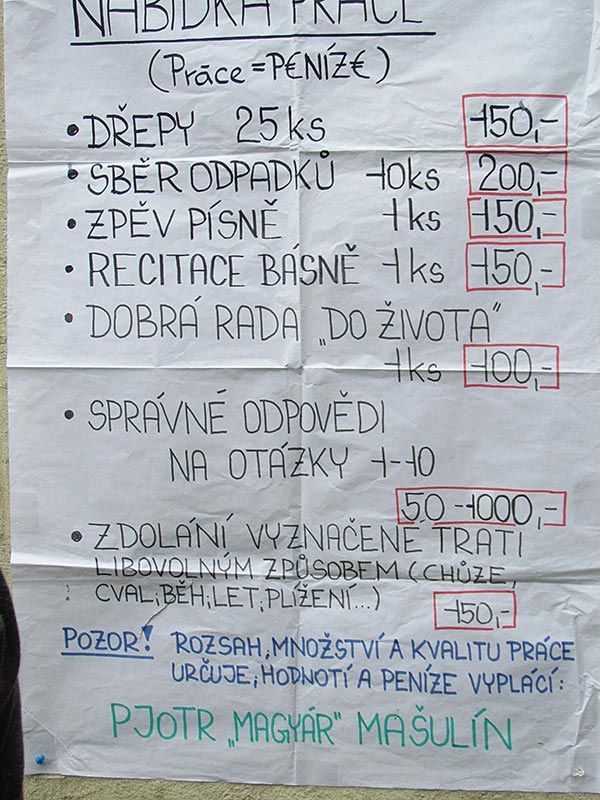 NABÍDKA PRÁCE
(Práce = P€NÍZ€)
• DŘEPY 25 ks 150,-
• SBĚR ODPADKŮ 10ks 200,-
• ZPĚV PÍSNĚ 1 ks 150,-
• RECITACE BÁSNĚ 1 ks 150,-
• DOBRÁ RADA „DO ŽIVOTA“
1 ks 100,-
• SPRÁVNÉ ODPOVĚDI
NA OTÁZKY 1-10
50 -1000,-
• ZDOLÁNÍ VYZNAČENÉ TRATI
LIBOVOLNÝM ZPŮSOBEM (CHŮZE,
CVAL; BĚH; LET; PLÍŽENÍ...) 150,-
POZOR! ROZSAH, MNOŽSTVÍ A KVALITU PRÁCE
URČUJE; HODNOTÍ A PENÍZE VYPLÁCÍ:
PJOTR „MAGYÁR“ MAŠULÍN